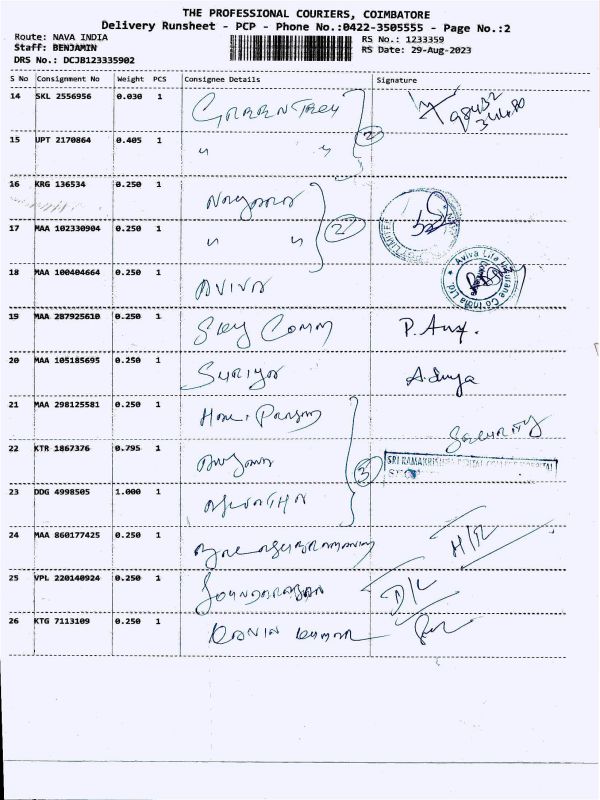 THE PROFESSIONAL COURIERS, COIMBATORE
Delivery Runsheet - PCP - Phone No.:0422-3505555 - Page No.:2
Route: NAVA INDIA
RS No.: 1233359
Staff: BENJAMIN
RS Date: 29-Aug-2023
DRS No.: DCJB123335902
S No Consignment No Weight PCS Consignee Details Signature
14 SKL 2556956 0.030 1
2
15 UPT 2170864 0.405 1 " "
16 KRG 136534 0.250 1
17 MAA 102330904 0.250 1 " " 2
18 MAA 100404664 0.250 1 AVIVA
Aviva Life Insurance Co India Ltd.
19 MAA 287925610 0.250 1 Sky Comm
20 MAA 105185695 0.250 1 Suriya
21 MAA 298125581 0.250 1
Security
22 KTR 1867376 0.795 1 3
SRI RAMAKRISHNA DENTAL COLLEGE HOSPITAL
23 DDG 4998505 1.000 1
24 MAA 860177425 0.250 1 Balasubramaniam H/R
25 VPL 220140924 0.250 1 Soundararajan D/L
26 KTG 7113109 0.250 1 Kumar